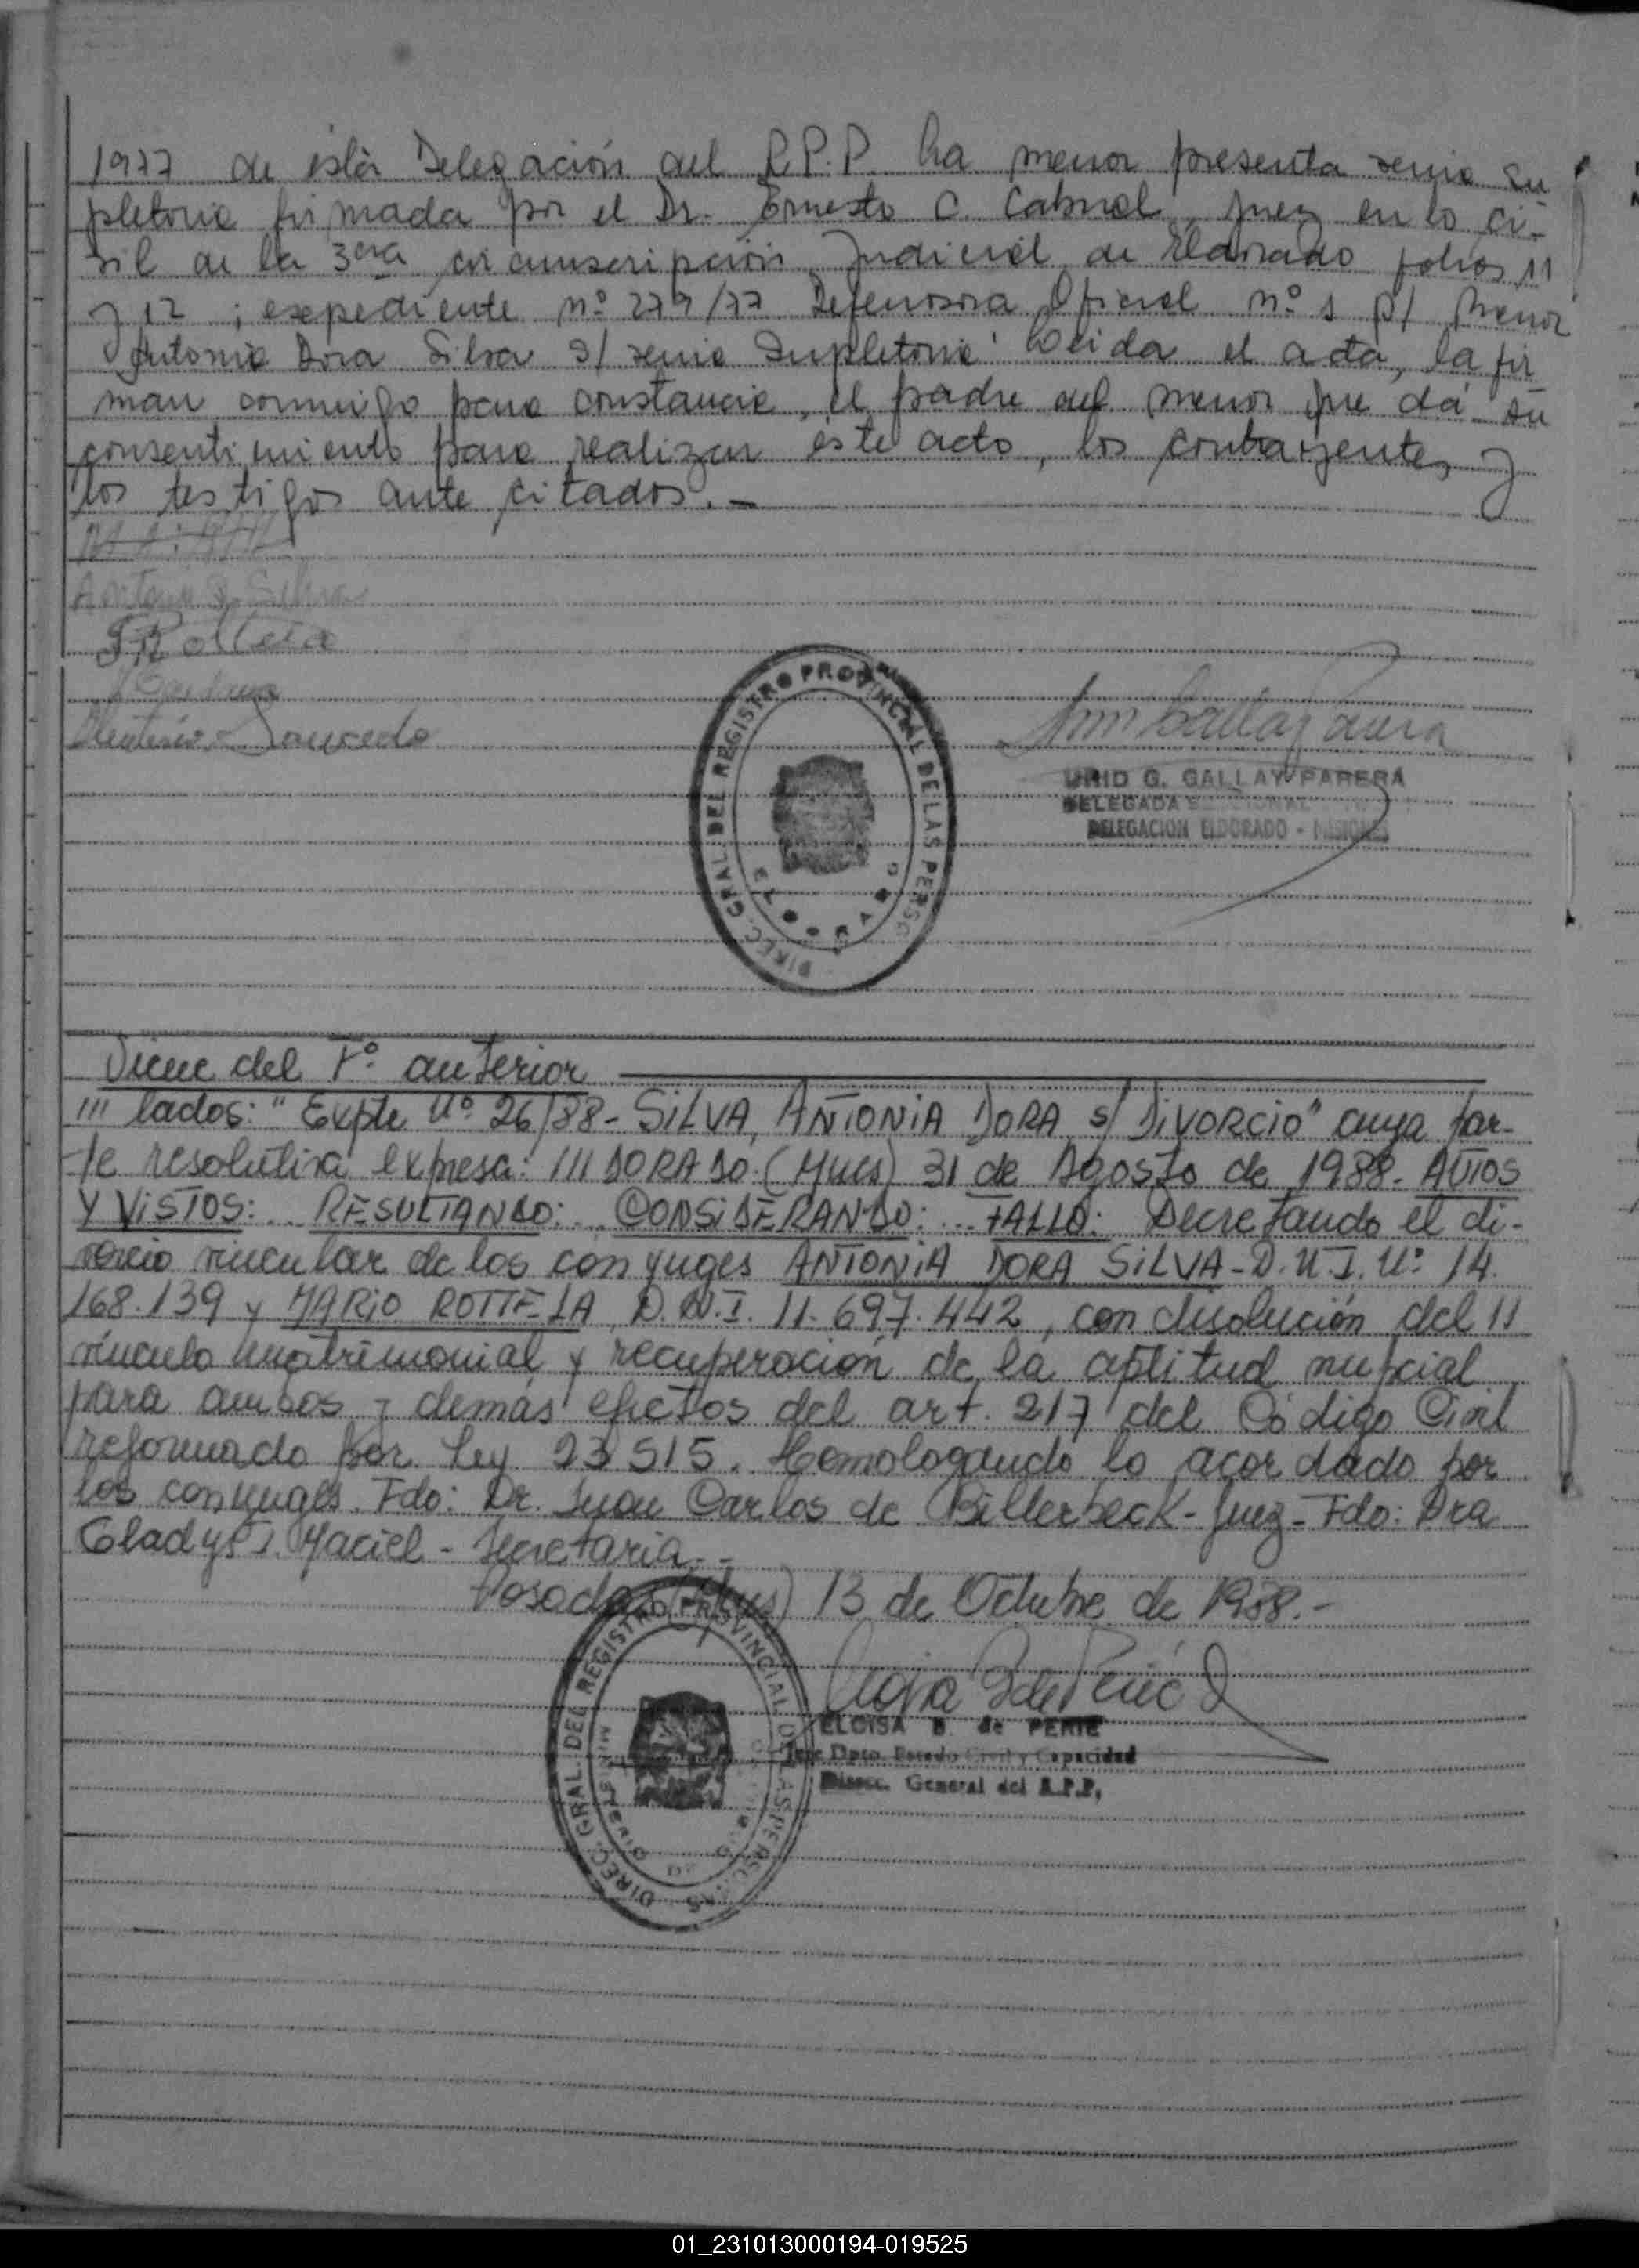 1977 de ésta Delegación del R.P.P. La menor presenta venia su
pletoria firmada por el Dr. Ernesto C. Cabral, Juez en lo ci-
vil de la 3era circunscripción Judicial de Eldorado folios 11
y 12 ; expediente nº 279/77 Defensora Oficial nº 1 p/ menor
Antonia Dora Silva s/ venia Supletoria. Leída el acta, la fir
man conmigo para constancia, el padre del menor que dá su
consentimiento para realizar éste acto, los contrayentes y
los testigos ante citados.-
Antonia D. Silva
Saucedo
DIREC. GRAL. DEL REGISTRO PROVINCIAL DE LAS PERSO
ELDORADO
URID G. GALLAY PARERA
DELEGADA
DELEGACION ELDORADO - MISIONES
Viene del Fº anterior
/// lados: "Expte Nº 26/88- SILVA, ANTONIA DORA s/ DIVORCIO" cuya par-
te resolutiva expresa: /// DORADO (Mnes) 31 de Agosto de 1988- AUTOS
Y VISTOS: .. RESULTANDO: .. CONSIDERANDO: ... FALLO: Decretando el di-
vorcio vincular de los conyuges ANTONIA DORA SILVA- D.N.I. Nº 14.
168.139 y MARIO ROTTELA, D.N.I. 11.697.442, con disolución del //
vínculo matrimonial y recuperación de la aptitud nupcial
para ambos y demás efectos del art. 217 del Código Civil
reformado por Ley 23515. Homologando lo acordado por
los conyuges. Fdo: Dr. Juan Carlos de Billerbeck- Juez- Fdo: Dra
Gladys I. Maciel - Secretaria.-
Posadas (Mnes) 13 de Octubre de 1988.-
DIREC. GRAL. DEL REGISTRO PROVINCIAL DE LAS PERSONAS
ELOISA B. de PERIE
Jefe Dpto. Estado Civil y Capacidad
Direcc. General del R.P.P.
01_231013000194-019525